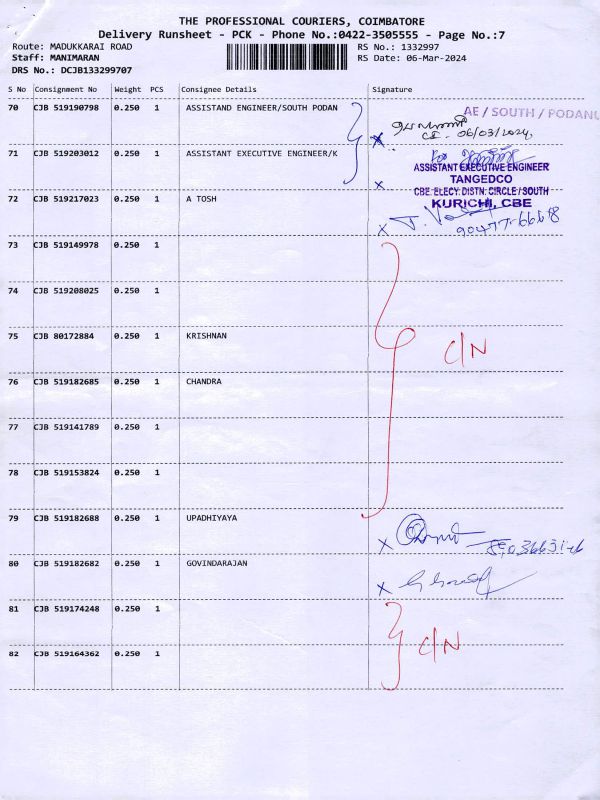 THE PROFESSIONAL COURIERS, COIMBATORE
Delivery Runsheet - PCK - Phone No.:0422-3505555 - Page No.:7
Route: MADUKKARAI ROAD
RS No.: 1332997
Staff: MANIMARAN
RS Date: 06-Mar-2024
DRS No.: DCJB133299707
S No Consignment No Weight PCS Consignee Details Signature
70 CJB 519190798 0.250 1 ASSISTAND ENGINEER/SOUTH PODAN
AE / SOUTH / PODANU
CI - 06/03/2024,
71 CJB 519203012 0.250 1 ASSISTANT EXECUTIVE ENGINEER/K
ASSISTANT EXECUTIVE ENGINEER
TANGEDCO
CBE. ELECY. DISTN. CIRCLE / SOUTH
KURICHI, CBE
72 CJB 519217023 0.250 1 A TOSH
73 CJB 519149978 0.250 1
74 CJB 519208025 0.250 1
75 CJB 80172884 0.250 1 KRISHNAN
C/N
76 CJB 519182685 0.250 1 CHANDRA
77 CJB 519141789 0.250 1
78 CJB 519153824 0.250 1
79 CJB 519182688 0.250 1 UPADHIYAYA
80 CJB 519182682 0.250 1 GOVINDARAJAN
81 CJB 519174248 0.250 1
C/N
82 CJB 519164362 0.250 1